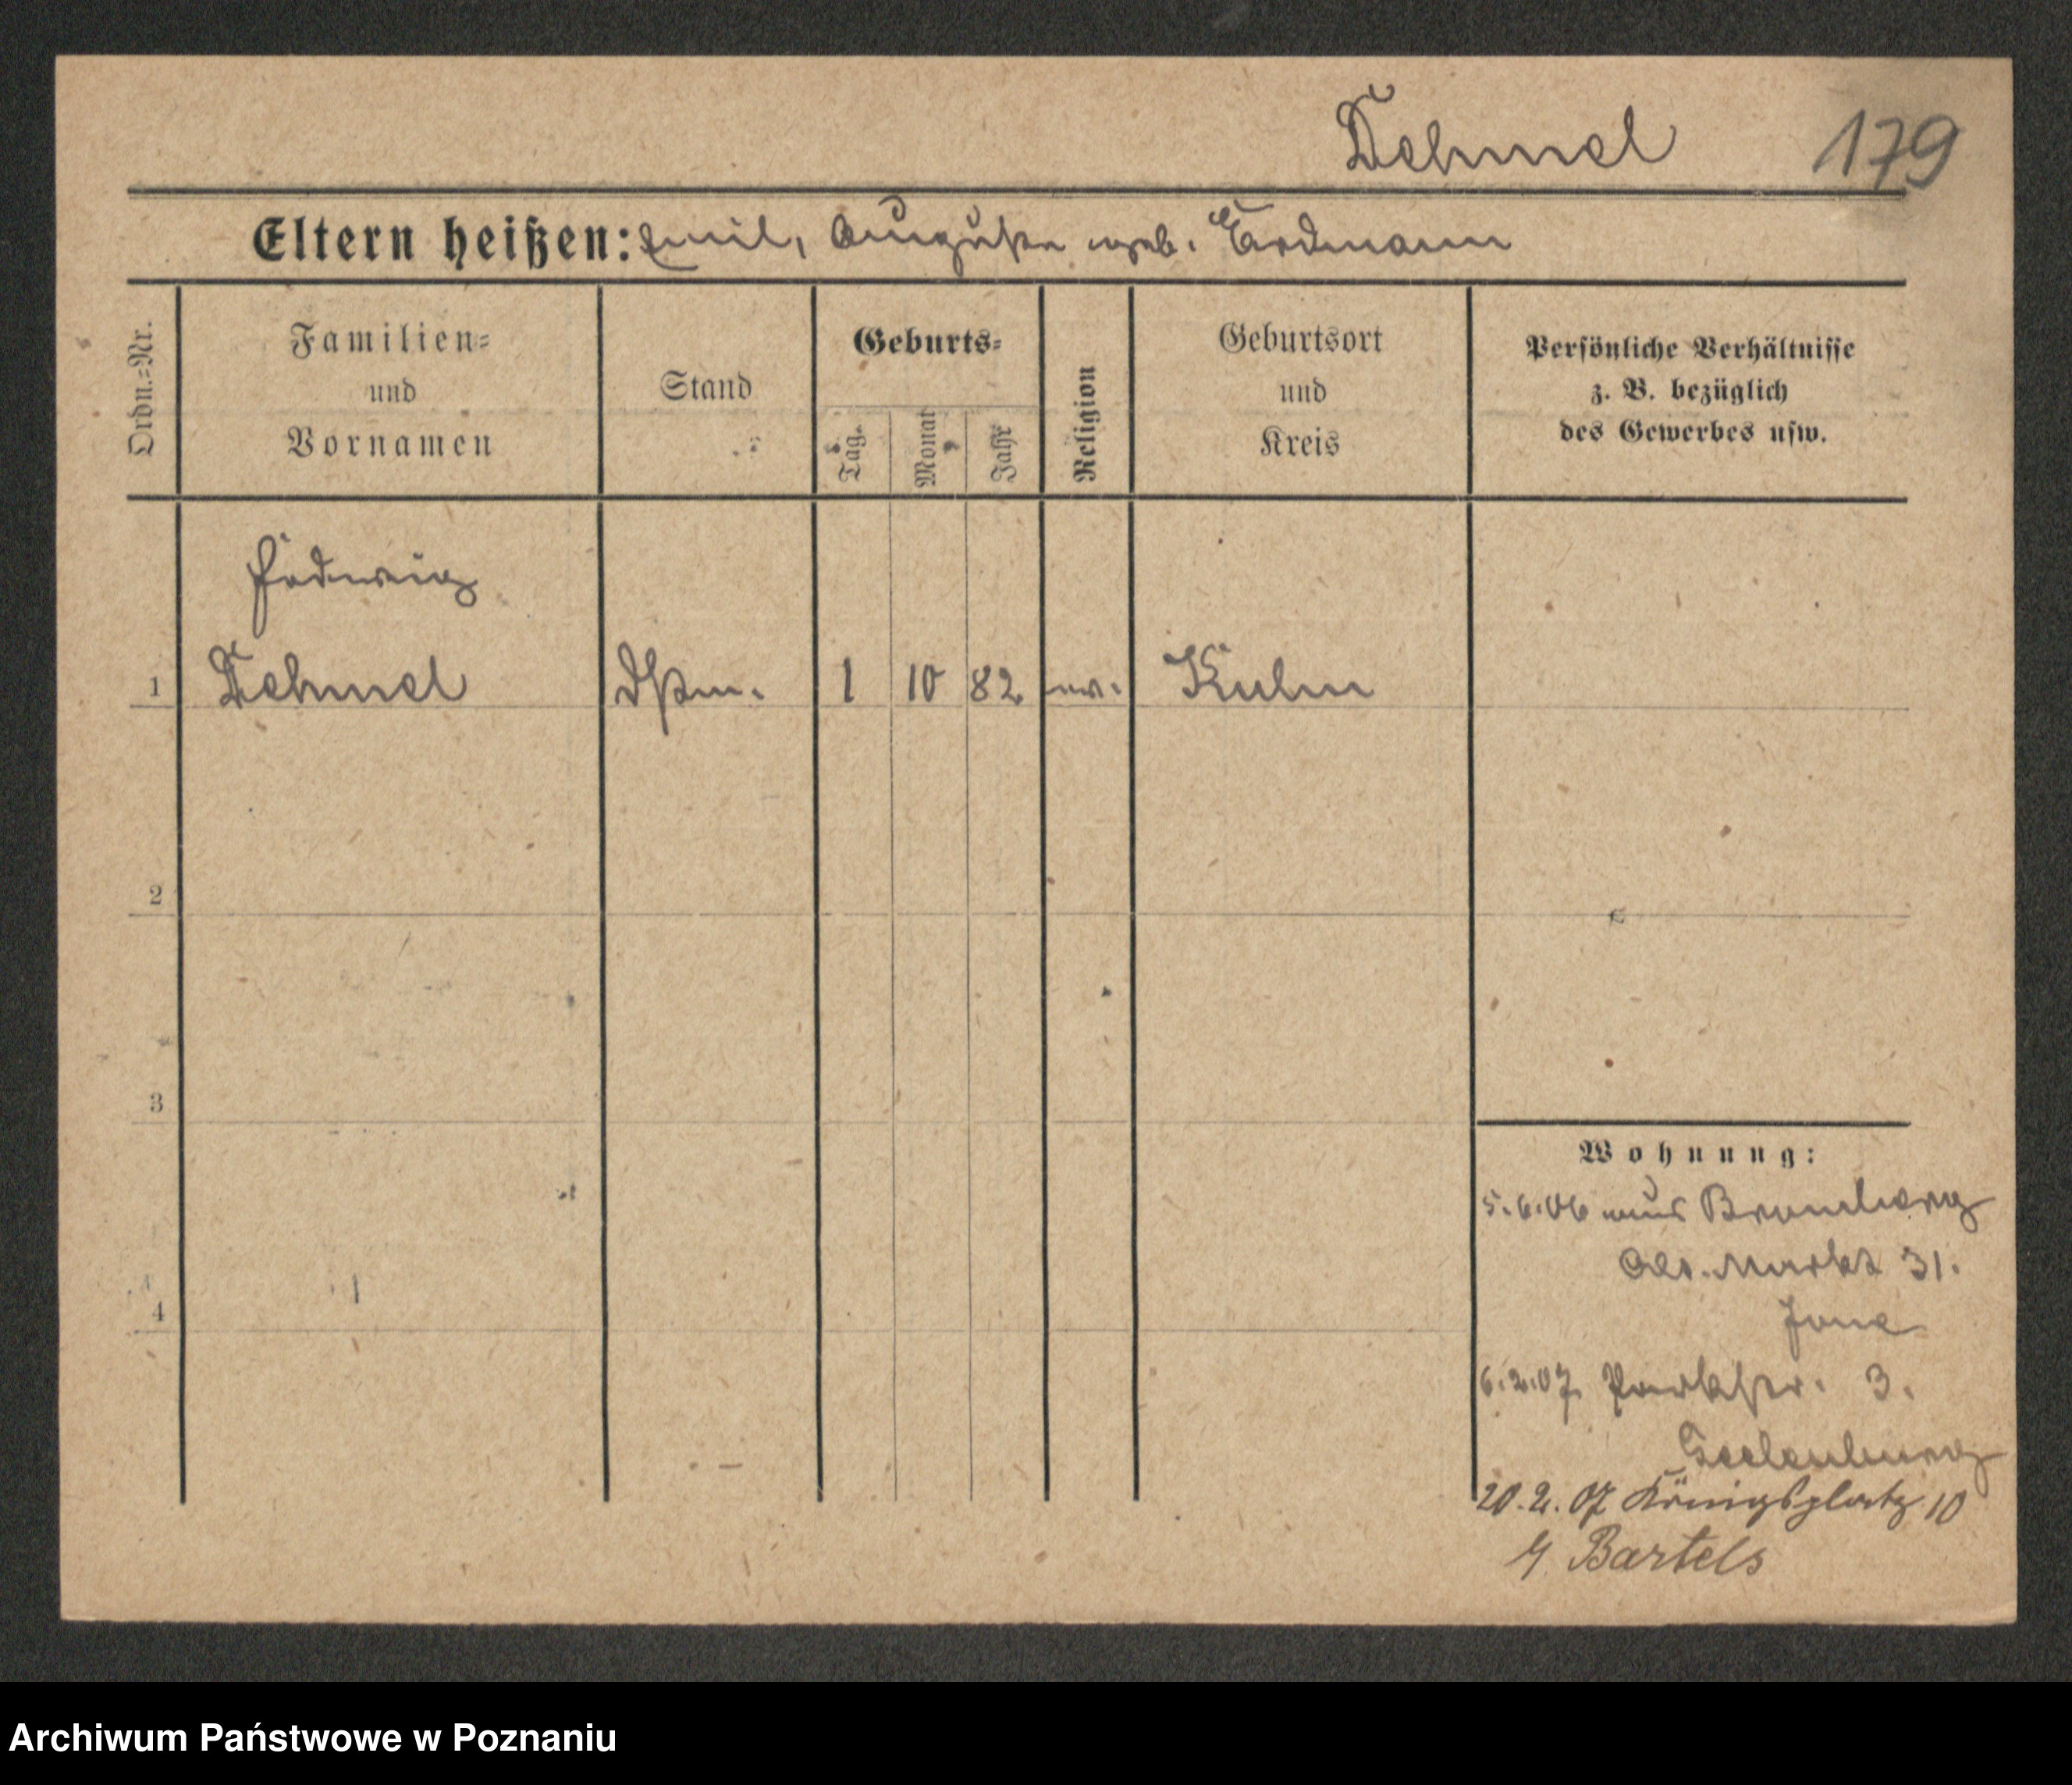 Dehmel 179
Eltern heißen: Emil, Auguste geb. Erdmann
Ordn.=Nr.
Familien=
und
Vornamen
Stand
Geburts=
Tag.
Monat
Jahr
Religion
Geburtsort
und
Kreis
Persönliche Verhältnisse
z. B. bezüglich
des Gewerbes usw.
Hedwig
1 Dehmel Dstm. 1 10 82 ev. Kulm
2
3
4
Wohnung:
5.6.06 aus Bromberg
Alt. Markt 31.
6.2.07 Parkstr. 3.
20.2.07 Königsplatz 10
Bartels
Archiwum Państwowe w Poznaniu